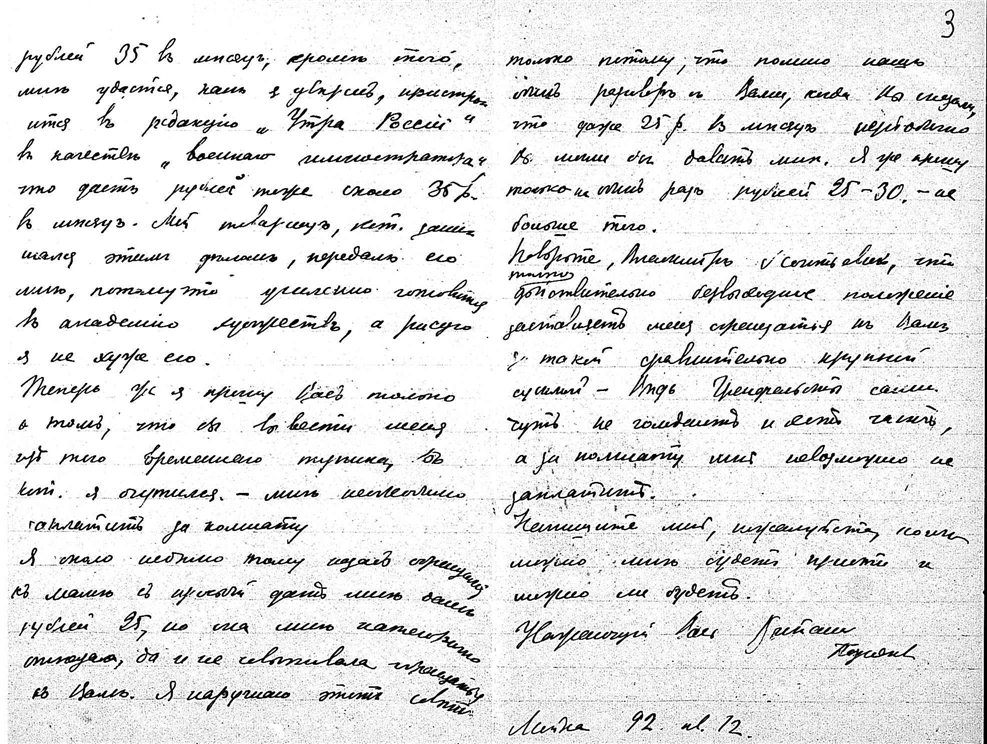 3
рублей 35 въ мѣсяцъ, кромѣ того,
мнѣ удастся, какъ я увѣренъ, пристро
иться въ редакцію „Утра Россіи"
въ качествѣ „военнаго иллюстратора"
что дастъ рублей тоже около 35 р.
въ мѣсяцъ. Мой товарищъ, кот. зани
мался этимъ дѣломъ, передалъ его
мнѣ, потому что усиленно готовится
въ академію художествъ, а рисую
я не хуже его.
Теперь же я прошу Васъ только
о томъ, что бы вывести меня
изъ того временнаго тупика, въ
кот. я очутился. – мнѣ необходимо
заплатить за комнату
Я около недѣли тому назадъ обращался
къ мамѣ съ просьбой дать мнѣ
рублей 25, но она мнѣ категорично
отказала, да и не совѣтовала обращаться
къ Вамъ. Я нарушаю этотъ совѣтъ
только потому, что помню нашъ
одинъ разговоръ съ Вами, когда Вы сказали,
что даже 25 р. въ мѣсяцъ
Вы могли бы давать мнѣ. Я же прошу
только одинъ разъ рублей 25–30. – не
больше того.
Повѣрьте, Владимиръ, что
только
дѣйствительно безвыходное положеніе
заставляетъ меня обращаться къ Вамъ
за такой сравнительно крупной
суммой – Вѣдь сами
чуть не голодаютъ и ѣсть
а за комнату мнѣ невозможно не
заплатить.
Напишите мнѣ, пожалуйста, когда
можно мнѣ будетъ прійти и
можно ли будетъ.
Уважающій Васъ
92. кв. 12.